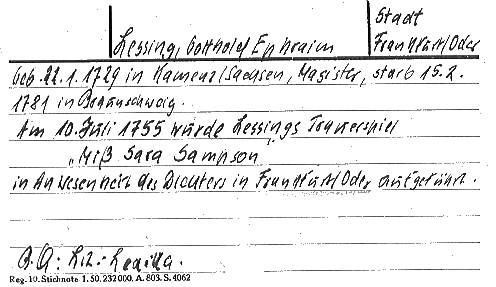 Stadt
Lessing, Gotthold Ephraim Frankfurt/Oder
geb. 22.1.1729 in Kamenz/Sachsen, Magister, starb 15.2.
1781 in Braunschweig.
Am 10. Juli 1755 wurde Lessings Trauerspiel
„Miß Sara Sampson"
in Anwesenheit des Dichters in Frankfurt/Oder aufgeführt.
B.Q: Lit.-Lexika.
Reg. 10. Stichnote 1. 50. 232000. A. 803. S. 4062